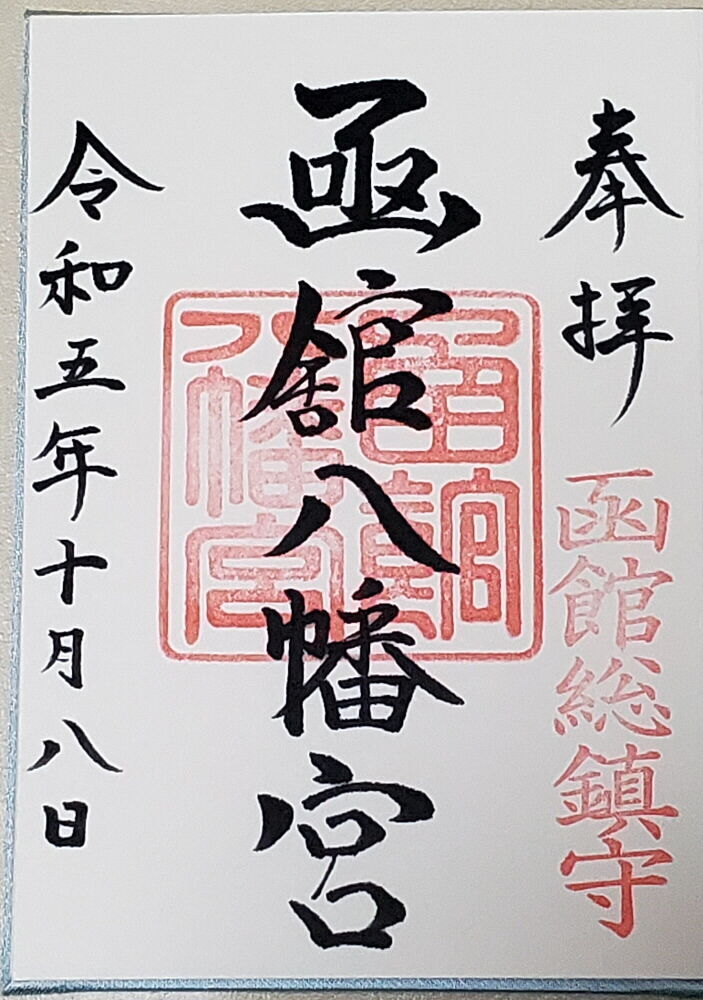 奉拝
函館総鎮守
函舘八幡宮
函館八幡宮
令和五年十月八日